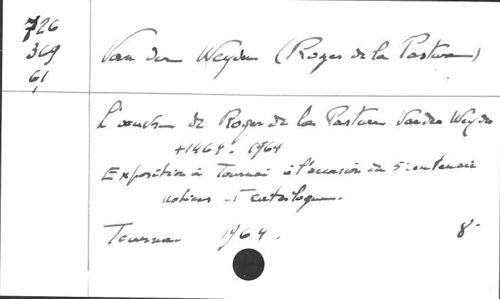 726
369
61
Van der Weyden (Roger de la Pasture)
L'œuvre de Roger de la Pasture Van der Weyden
+1464. 1964
Exposition à Tournai à l'occasion du 5e centenaire
notices et catalogue.
Tournai 1964. 8°